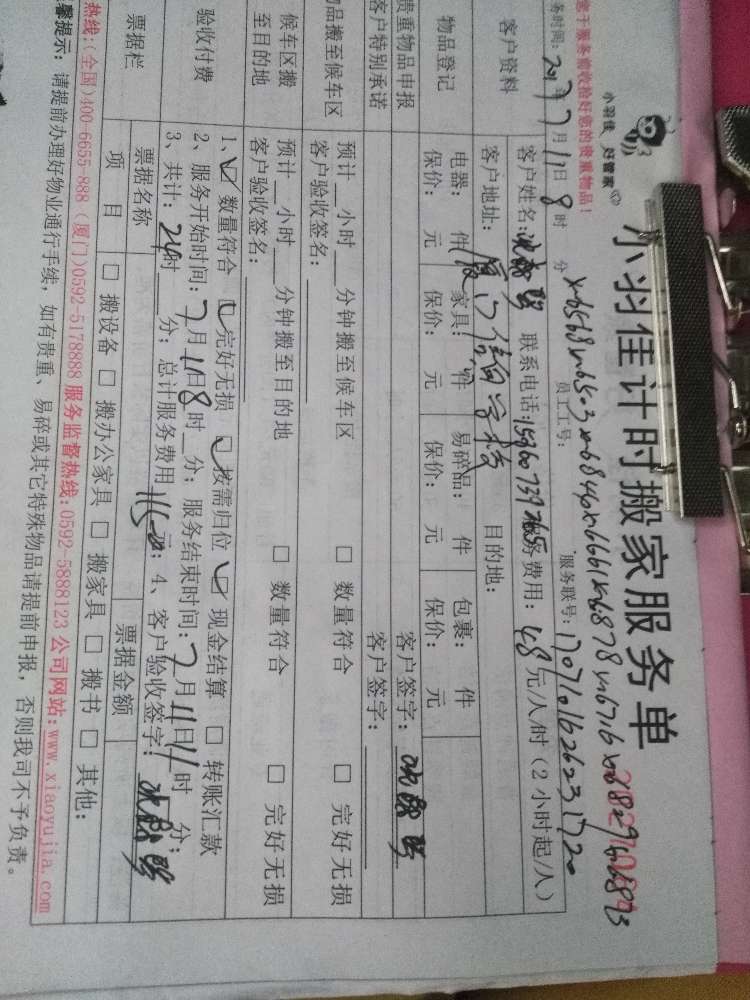 小羽佳 好管家
小羽佳计时搬家服务单
请您于服务前收拾好您的贵重物品!
服务时间: 2017年7月11日8时 分 员工工号: xm6568xm6503xm6844xm6661xm6878xm6716xm6829xm6893
服务联号: 1707101626231720
客户资料
客户姓名: 联系电话: 服务费用: 48元/人/时(2小时起/人)
客户地址: 厦门信息学校 目的地:
物品登记
电器: 件 家具: 件 易碎品: 件 包裹: 件
保价: 元 保价: 元 保价: 元 保价: 元
贵重物品申报 客户签字:
客户特别承诺 客户签字:
物品搬至候车区
预计__小时__分钟搬至候车区 □ 数量符合 □ 完好无损
客户验收签名:
候车区搬至目的地
预计__小时__分钟搬至目的地 □ 数量符合 □ 完好无损
客户验收签名:
验收付费
1、☑ 数量符合 ☑ 完好无损 ☑ 按需归位 ☑ 现金结算 □ 转账汇款
2、服务开始时间: 7月11日8时__分; 服务结束时间: 7月11日11时 分;
3、共计: 24时__分; 总计服务费用1152元; 4、客户验收签字:
票据栏
票据名称 票据金额
项 目 □ 搬设备 □ 搬办公家具 □ 搬家具 □ 搬书 □ 其他:
热线:(全国)400-6655-888 (厦门)0592-5178888 服务监督热线: 0592-5888123 公司网站: www.xiaoyujia.com
馨提示: 请提前办理好物业通行手续, 如有贵重、易碎或其它特殊物品请提前申报, 否则我司不予负责。